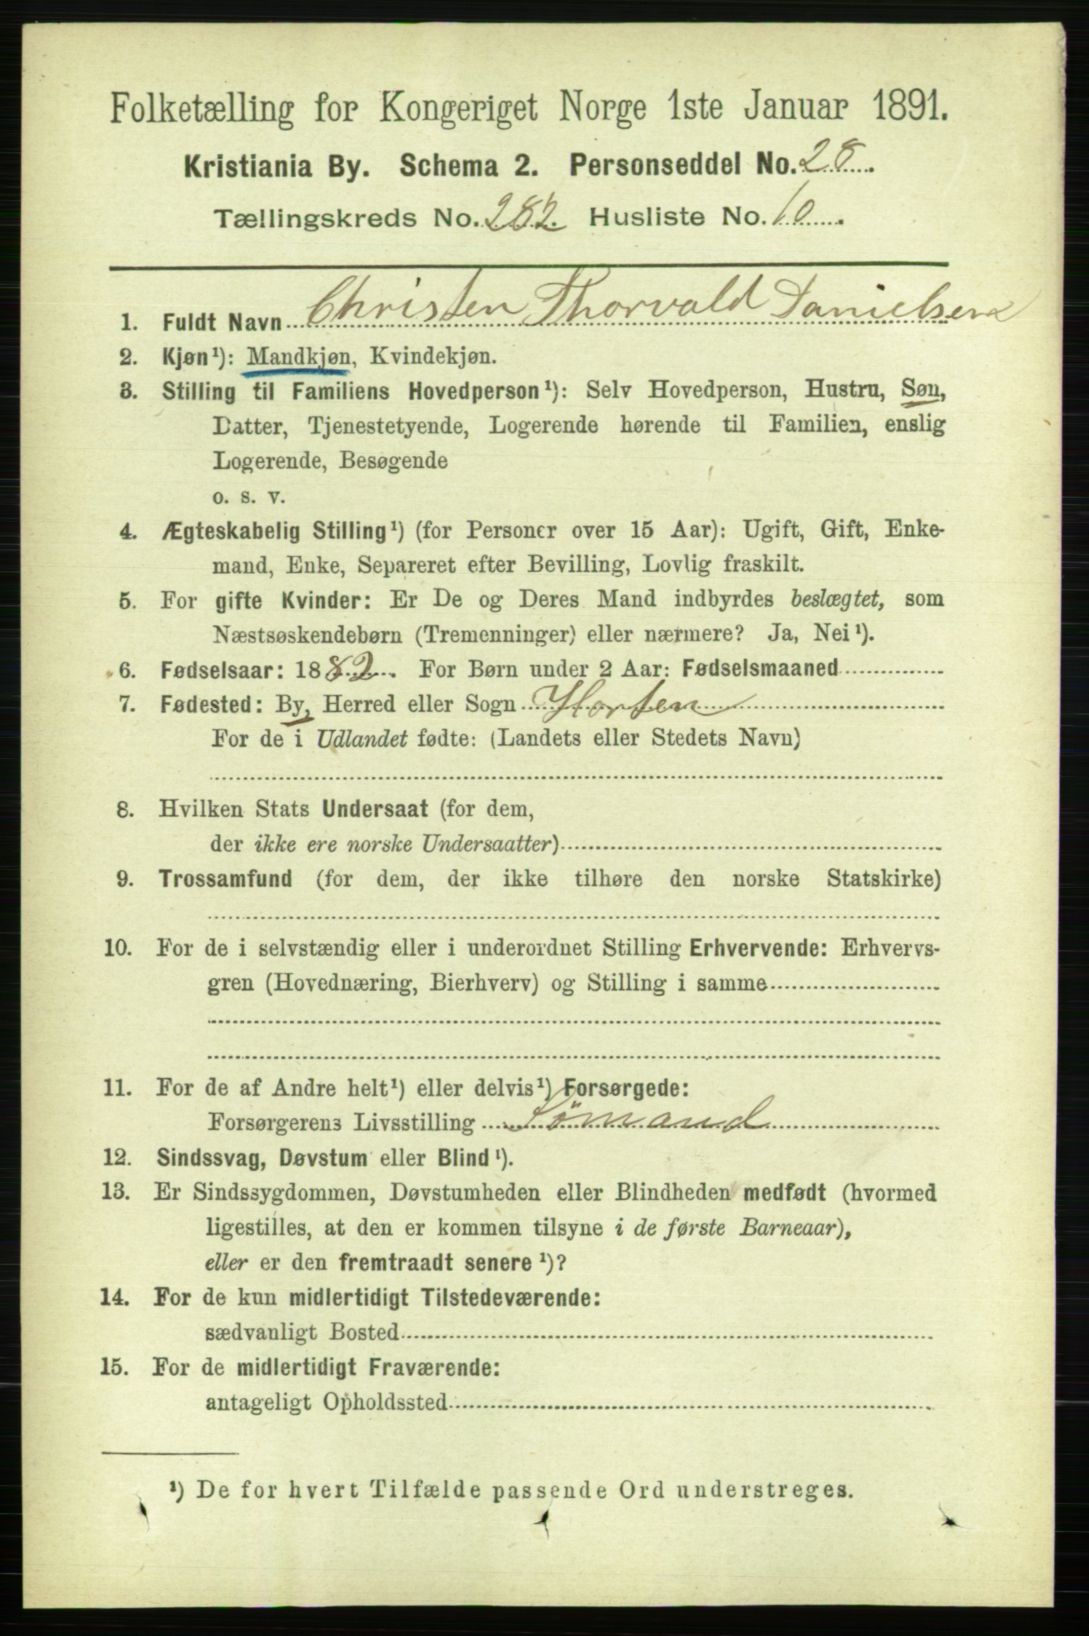 Folketælling for Kongeriget Norge 1ste Januar 1891.
Kristiania By. Schema 2. Personseddel No. 28.
Tællingskreds No. 282. Husliste No. 10.
1. Fuldt Navn Christen Thorvald Danielsen
2. Kjøn¹): Mandkjøn, Kvindekjøn.
3. Stilling til Familiens Hovedperson¹): Selv Hovedperson, Hustru, Søn,
Datter, Tjenestetyende, Logerende hørende til Familien, enslig
Logerende, Besøgende
o. s. v.
4. Ægteskabelig Stilling¹) (for Personer over 15 Aar): Ugift, Gift, Enke-
mand, Enke, Separeret efter Bevilling, Lovlig fraskilt.
5. For gifte Kvinder: Er De og Deres Mand indbyrdes beslægtet, som
Næstsøskendebørn (Tremenninger) eller nærmere? Ja, Nei¹).
6. Fødselsaar: 1882. For Børn under 2 Aar: Fødselsmaaned
7. Fødested: By, Herred eller Sogn Horten
For de i Udlandet fødte: (Landets eller Stedets Navn)
8. Hvilken Stats Undersaat (for dem,
der ikke ere norske Undersaatter)
9. Trossamfund (for dem, der ikke tilhøre den norske Statskirke)
10. For de i selvstændig eller i underordnet Stilling Erhvervende: Erhvervs-
gren (Hovednæring, Bierhverv) og Stilling i samme
11. For de af Andre helt¹) eller delvis¹) Forsørgede:
Forsørgerens Livsstilling Sömand
12. Sindssvag, Døvstum eller Blind¹).
13. Er Sindssygdommen, Døvstumheden eller Blindheden medfødt (hvormed
ligestilles, at den er kommen tilsyne i de første Barneaar),
eller er den fremtraadt senere¹)?
14. For de kun midlertidigt Tilstedeværende:
sædvanligt Bosted
15. For de midlertidigt Fraværende:
antageligt Opholdssted
¹) De for hvert Tilfælde passende Ord understreges.